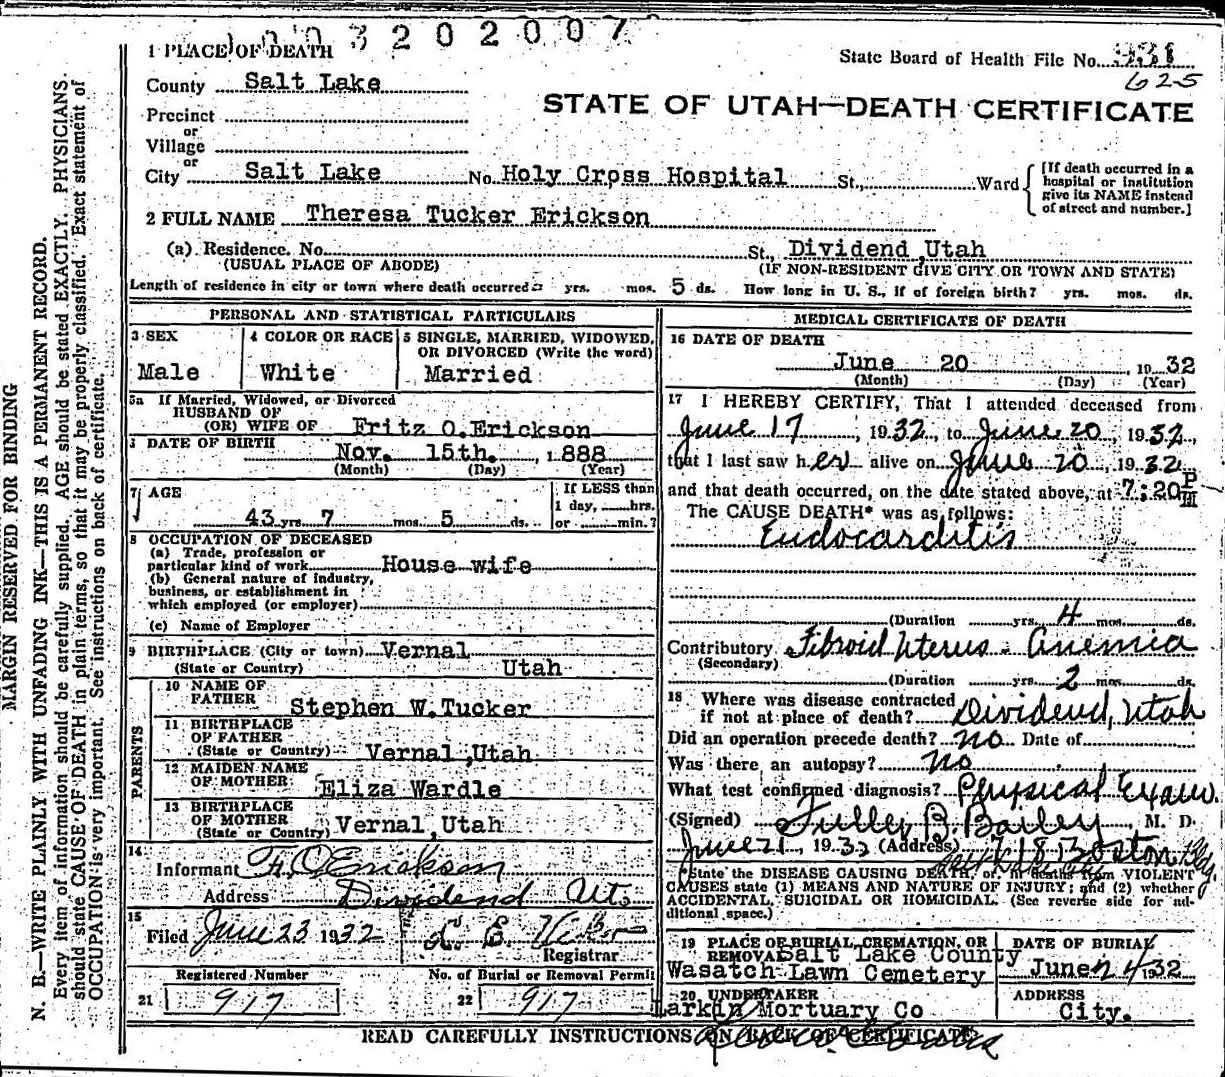 3 2 0 2 0 0 7
1 PLACE OF DEATH
State Board of Health File No. 931
625
County Salt Lake
STATE OF UTAH—DEATH CERTIFICATE
Precinct
or
Village
or
City Salt Lake No. Holy Cross Hospital St., Ward [If death occurred in a hospital or institution give its NAME instead of street and number.]
2 FULL NAME Theresa Tucker Erickson
(a) Residence. No. St., Dividend, Utah
(USUAL PLACE OF ABODE) (IF NON-RESIDENT GIVE CITY OR TOWN AND STATE)
Length of residence in city or town where death occurred yrs. mos. 5 ds. How long in U. S., if of foreign birth? yrs. mos. ds.
PERSONAL AND STATISTICAL PARTICULARS
3 SEX 4 COLOR OR RACE 5 SINGLE, MARRIED, WIDOWED,
OR DIVORCED (Write the word)
Male White Married
5a If Married, Widowed, or Divorced
HUSBAND OF
(OR) WIFE OF Fritz O.Erickson
DATE OF BIRTH Nov. 15th. 1888
(Month) (Day) (Year)
7 AGE If LESS than
1 day, hrs.
43 yrs. 7 mos. 5 ds. or min.?
8 OCCUPATION OF DECEASED
(a) Trade, profession or
particular kind of work House wife
(b) General nature of industry,
business, or establishment in
which employed (or employer)
(c) Name of Employer
9 BIRTHPLACE (City or town) Vernal
(State or Country) Utah
PARENTS
10 NAME OF
FATHER Stephen W.Tucker
11 BIRTHPLACE
OF FATHER
(State or Country) Vernal,Utah
12 MAIDEN NAME
OF MOTHER Eliza Wardle
13 BIRTHPLACE
OF MOTHER
(State or Country) Vernal,Utah
14
Informant F. O Erickson
Address Dividend Ut
15
Filed June 23 1932
Registrar
Registered Number No. of Burial or Removal Permit
21 917 22 917
MEDICAL CERTIFICATE OF DEATH
16 DATE OF DEATH
June 20 1932
(Month) (Day) (Year)
17 I HEREBY CERTIFY, That I attended deceased from
June 17, 1932, to June 20, 1932,
that I last saw her alive on June 20, 1932
and that death occurred, on the date stated above, at 7:20 P M
The CAUSE DEATH* was as follows:
Endocarditis
(Duration yrs. 4 mos. ds.
Contributory Fibroid Uterus - Anemia
(Secondary)
(Duration yrs. 2 mos. ds.
18 Where was disease contracted
if not at place of death? Dividend, Utah
Did an operation precede death? no Date of
Was there an autopsy? no
What test confirmed diagnosis? Physical Exam.
(Signed) Fuller B. Bailey, M. D.
June 21, 1932 (Address) 718 Boston Bldg.
*State the DISEASE CAUSING DEATH, or, in deaths from VIOLENT
CAUSES state (1) MEANS AND NATURE OF INJURY; and (2) whether
ACCIDENTAL, SUICIDAL OR HOMICIDAL. (See reverse side for ad-
ditional space.)
19 PLACE OF BURIAL, CREMATION, OR DATE OF BURIAL
REMOVAL Salt Lake County
Wasatch Lawn Cemetery June 24 1932
20 UNDERTAKER ADDRESS
Larkin Mortuary Co City.
READ CAREFULLY INSTRUCTIONS ON BACK OF CERTIFICATE
MARGIN RESERVED FOR BINDING
N. B.—WRITE PLAINLY WITH UNFADING INK—THIS IS A PERMANENT RECORD.
Every item of information should be carefully supplied. AGE should be stated EXACTLY. PHYSICIANS
should state CAUSE OF DEATH in plain terms, so that it may be properly classified. Exact statement of
OCCUPATION is very important. See instructions on back of certificate.